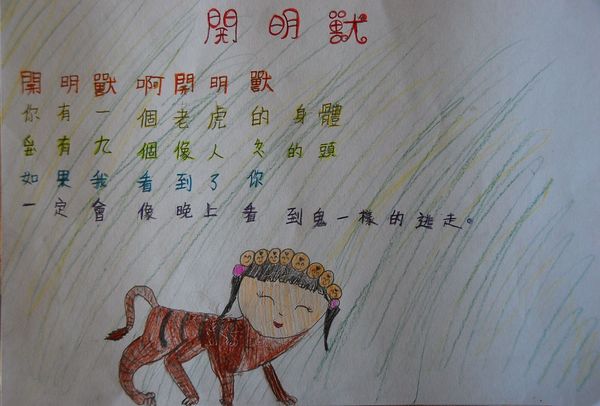 開明獸
開明獸 啊開明獸
你有一個老虎的身體
並有九個像人久的頭
如果我看到了你
一定會像晚上看到鬼一樣的逃走。